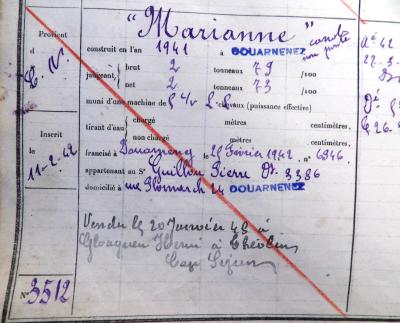 "Marianne" canot non ponté
Provient construit en l'an 1941 à DOUARNENEZ
d
C. N. jaugeant brut 2 tonneaux 79 /100
net 2 tonneaux 73 /100
muni d'une machine de chevaux (puissance effective)
tirant d'eau chargé mètres centimètres.
non chargé mètres centimètres.
Inscrit francisé à Douarnenez le 25 Février 1942 n° 6946
le
11-2-42 appartenant au Sr Guillou Pierre Dz. 3386
domicilié à rue Plomarch 24 DOUARNENEZ
Vendu le 20 Janvier 48 à
Gloaguen Henri à
Cap Sizun
N° 3512